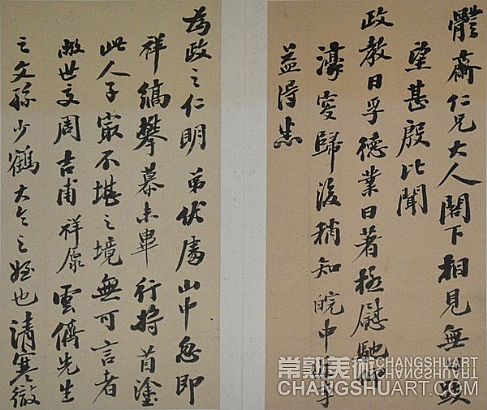 體齋仁兄大人閣下相見無
望甚殷比聞
政教日孚德業日著極慰馳
濠変歸後稍知皖中
益得悉
為政之仁明弟伏處山中忽即
祥縞攀慕未畢行将首塗
此人子最不堪之境無可言者
敝世文周吉甫祥康雲儕先生
之文孫少鶴大令之姪也清寒微
常熟美術CHANGSHUART.COM
CHANGSHUART.COM